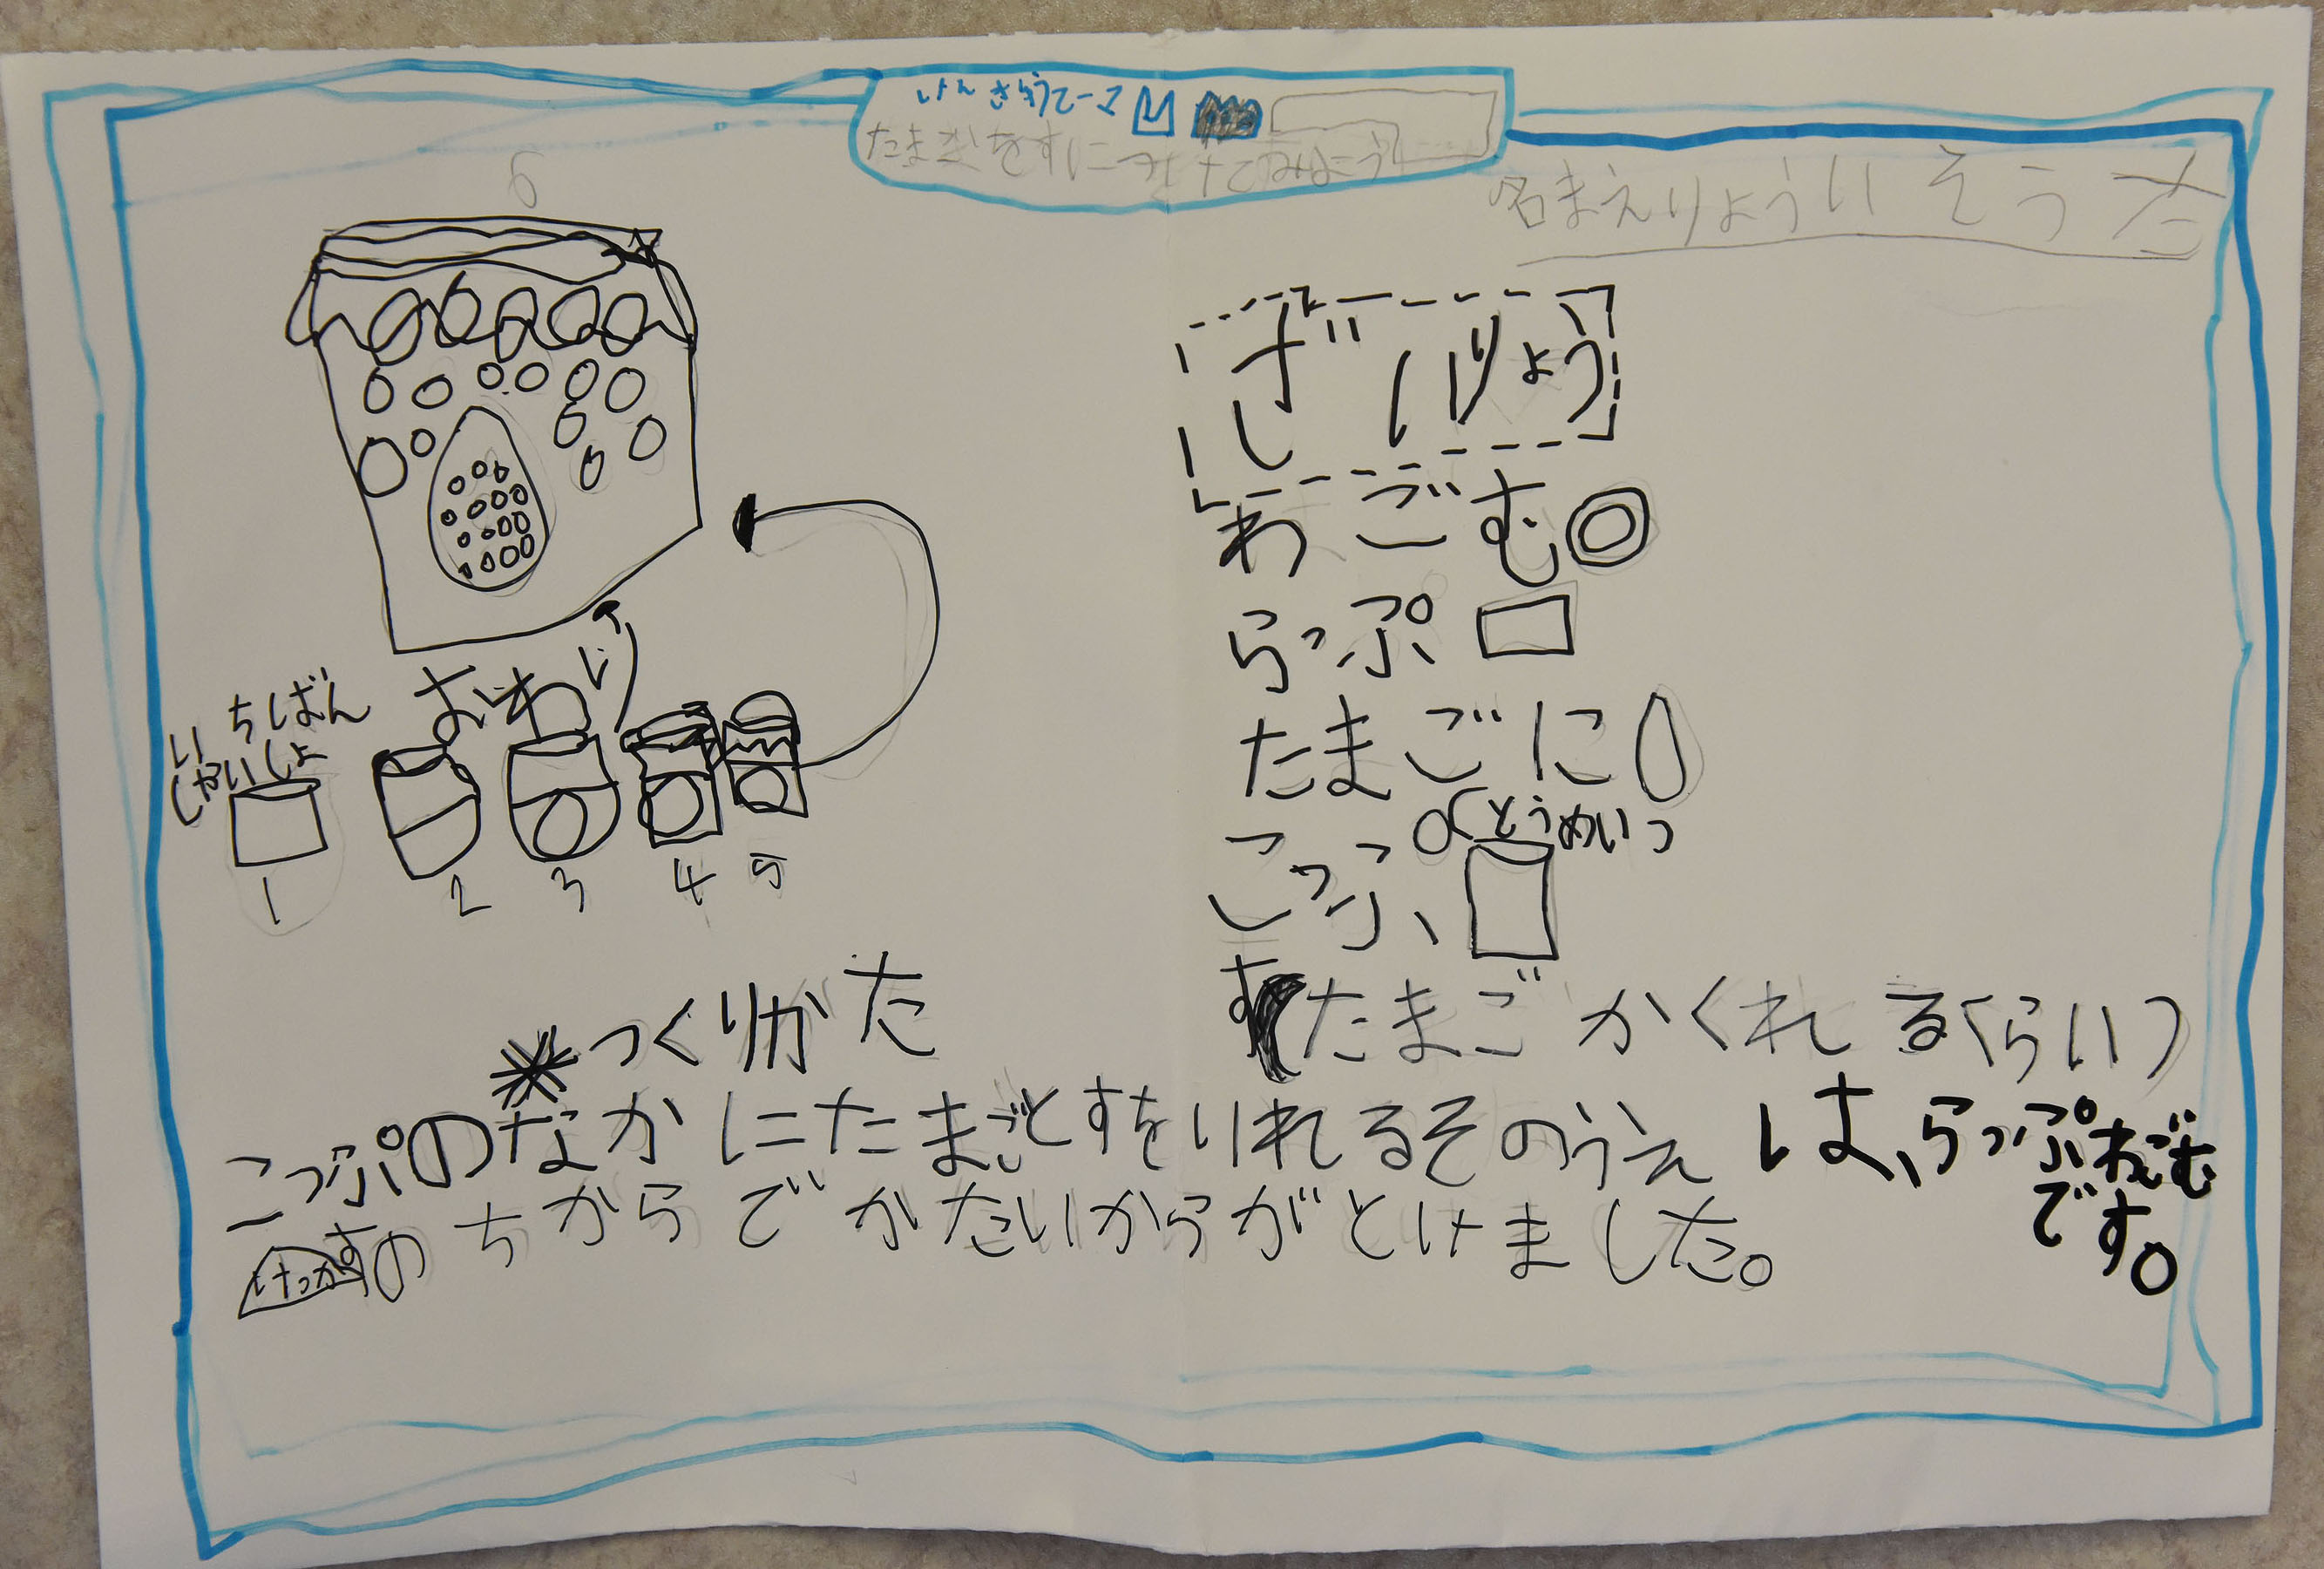 けんきゅうてーま
たまごをすにつけてみよう
名まえりょういそうた
6
ざいりょう
わごむ
らっぷ
たまごに
こっぷ(とうめい)
すたまごかくれるくらい)
いちばん
さいしょ
おわり
1 2 3 4 5
つくりかた
こっぷのなかにたまごとすをいれるそのうえは、らっぷわごむです。
けっか すのちからでかたいからがとけました。